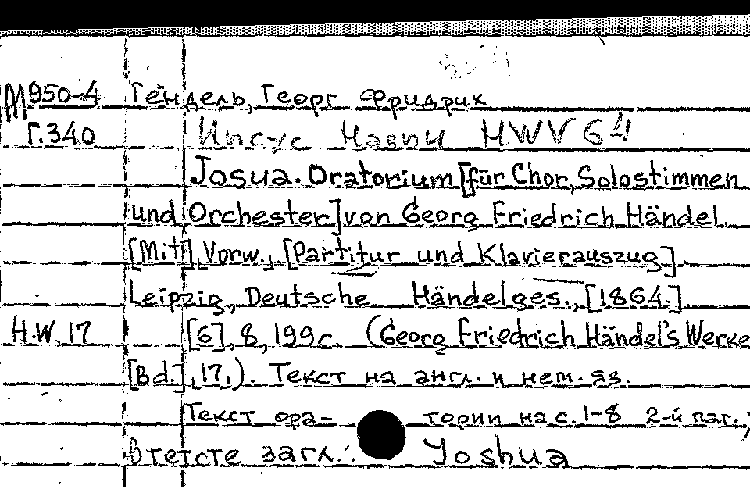 М950-4 Гендель, Георг Фридрик
Г.340 Иисус Навин HWV 64
Josua. Oratorium [für Chor, Solostimmen
und Orchester] von Georg Friedrich Händel.
[Mit] Vorw., [Partitur und Klavierauszug].
Leipzig, Deutsche Händelges., [1864.]
H.W. 17 [6], 8, 199 с. (Georg Friedrich Händel's Werke
[Bd.], 17.). Текст на англ. и нем. яз.
Текст ора- тории на с. 1-8 2-й паг.;
В тексте загл.: Joshua